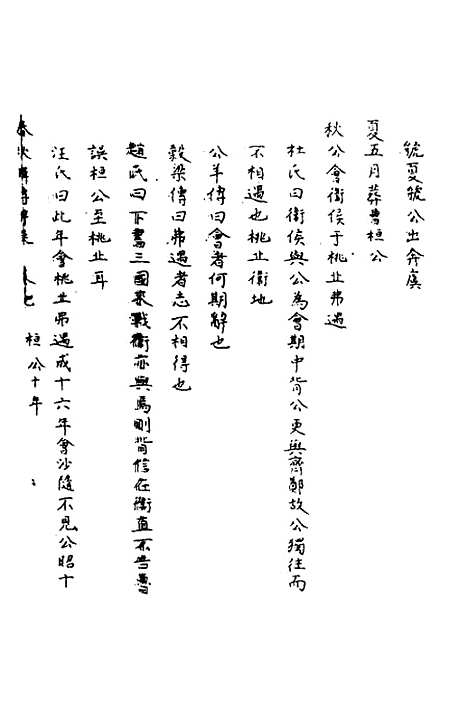 虢夏虢公出奔虞
夏五月葬曹桓公
秋公會衛侯于桃丘弗遇
杜氏曰衛侯與公為會期中背公更與齊鄭故公獨往而
不相遇也桃丘衛地
公羊傳曰會者何期辭也
穀梁傳曰弗遇者志不相得也
趙氏曰下書三國來戰衛亦與焉則背信在衛直不告魯
誤桓公至桃丘耳
汪氏曰此年會桃丘弗遇成十六年會沙隨不見公昭十
春秋 卷七 桓公十年